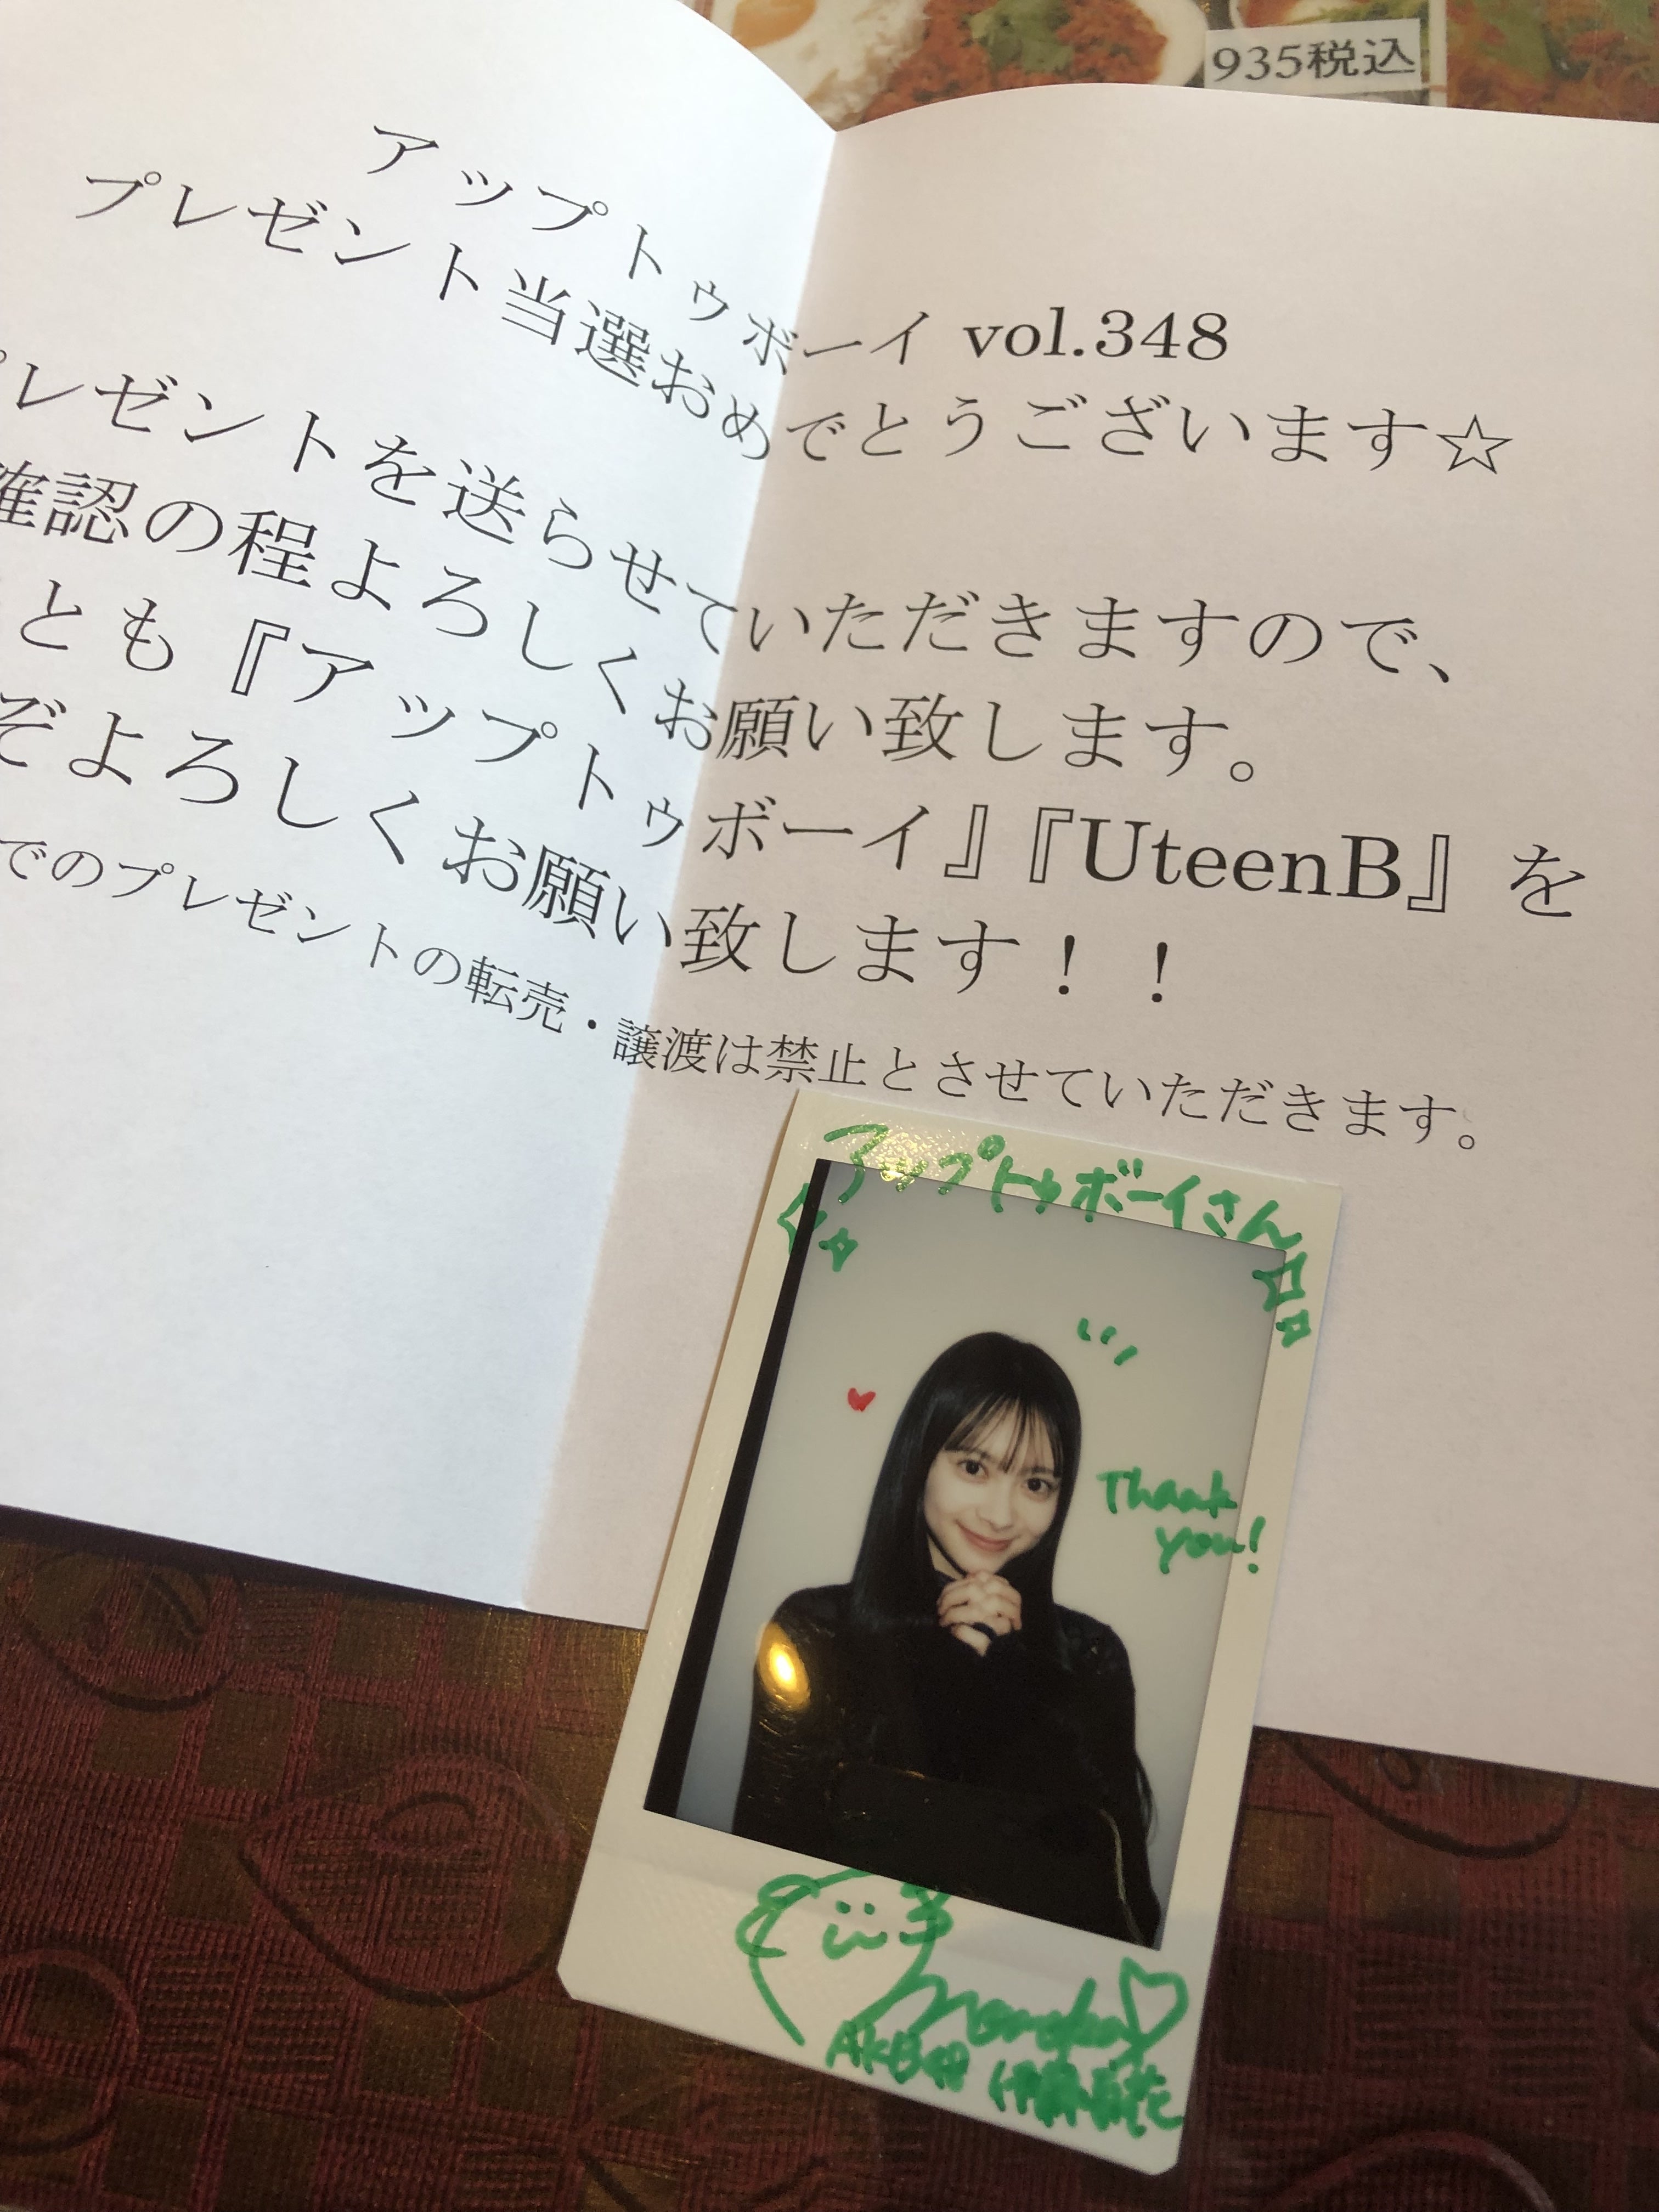 935税込
アップトゥボーイ vol.348
プレゼント当選おめでとうございます☆
レゼントを送らせていただきますので、
確認の程よろしくお願い致します。
とも『アップトゥボーイ』『UteenB』を
ぞよろしくお願い致します！！
でのプレゼントの転売・譲渡は禁止とさせていただきます。
アップトゥボーイさん
Thank
you!
Momoka♡
AKB48 伊藤百花